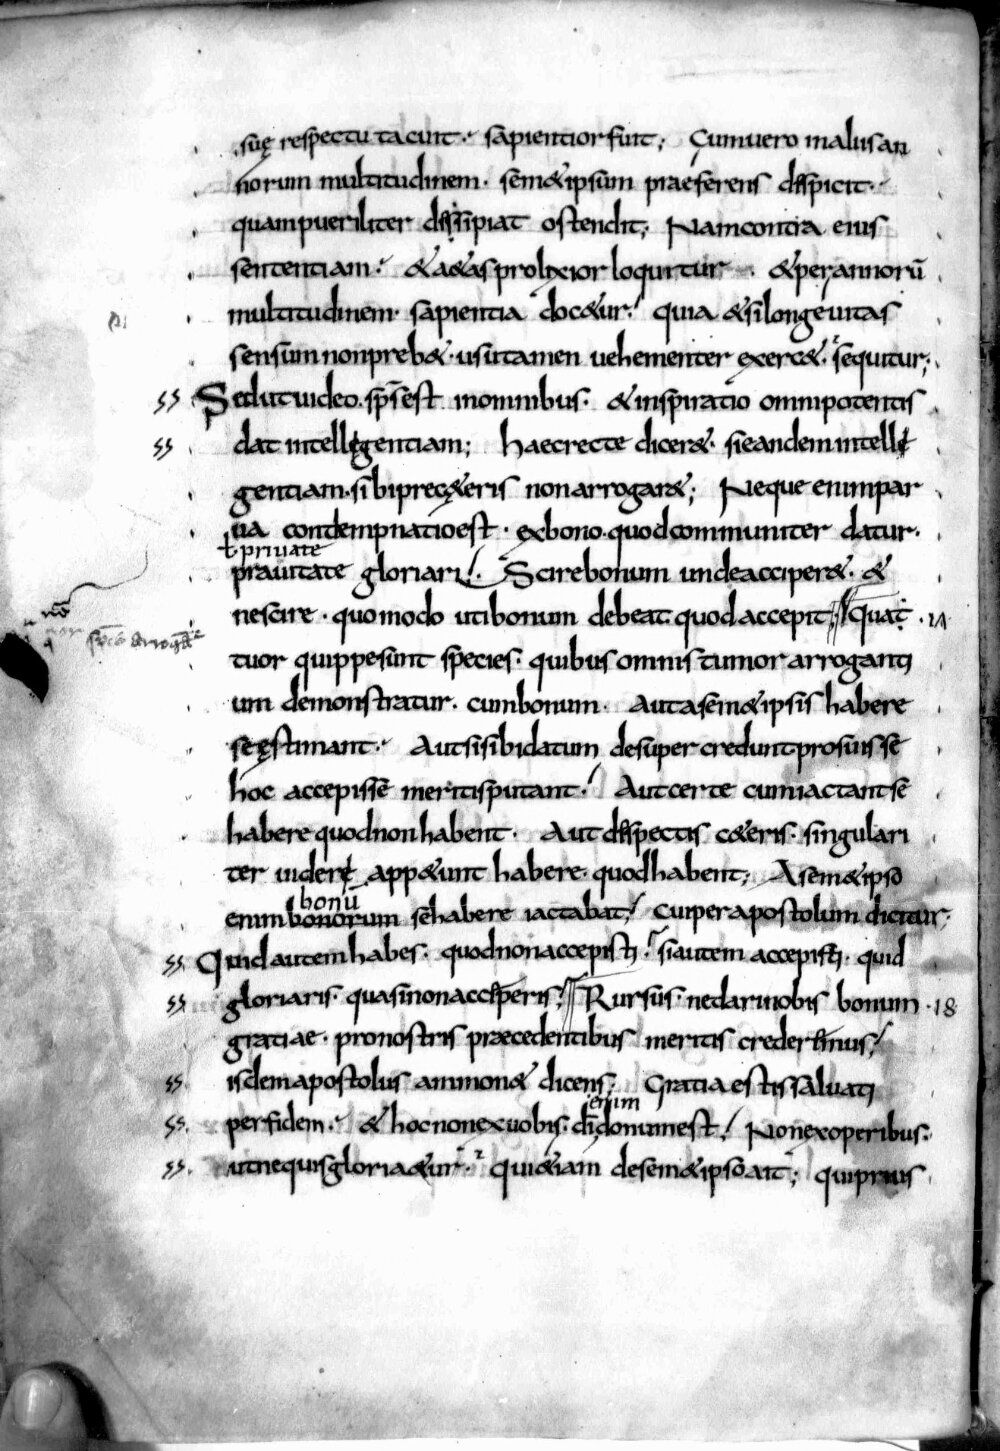 suę respectu tacuit. sapientior fuit; Cum uero malus an
norum multitudinem. sem&ipsum praeferens despicit.
quam pueriliter desipiat ostendit; Nam contra eius
sententiam. & a&as prolixior loquitur. & per annorū
multitudinem. sapientia doc&ur. quia &si longeuitas
sensum non preb&. usu tamen uehementer exerc&. sequitur;
ss Sed ut uideo. sp̄s est in omnibus. & inspiratio omnipotentis
ss dat intellegentiam; Haec recte dicer&. si eandem intelle
gentiam. sibi prec&eris non arrogar&; Neque enim par
ua condempnatio est. ex bono. quod communiter datur.
ł priuate
prauitate gloriari. Scire bonum unde acciper&. &
nescire. quomodo uti bonum debeat quod accepit; Quat
tuor quippe sunt species. quibus omnis tumor arroganti
um demonstratur. cum bonum. Aut a sem&ipsis habere
se ęstimant. Aut si sibi datum desuper credunt pro suis se
hoc accepisse meritis putant. Aut certe cum iactant se
habere quod non habent. Aut despectis c&eris. singulari
ter uidere app&unt habere. quod habent; A sem&ipso
bonū
enim bonorum se habere iactabat, Cui per apostolum dicitur;
ss Quid autem habes. quod non accepisti. si autem accepisti. quid
ss gloriaris. quasi non acceperis; Rursus. ne dari nobis bonum . 18
gratiae. pro nostris praecedentibus meritis crederemus,
ss isdem apostolus ammon& dicens; Gratia estis saluati
enim
ss. per fidem. & hoc non ex uobis. dī donum est, Non ex operibus.
ss. ut ne quis glori&ur. qui &iam de sem&ipso ait; qui prius